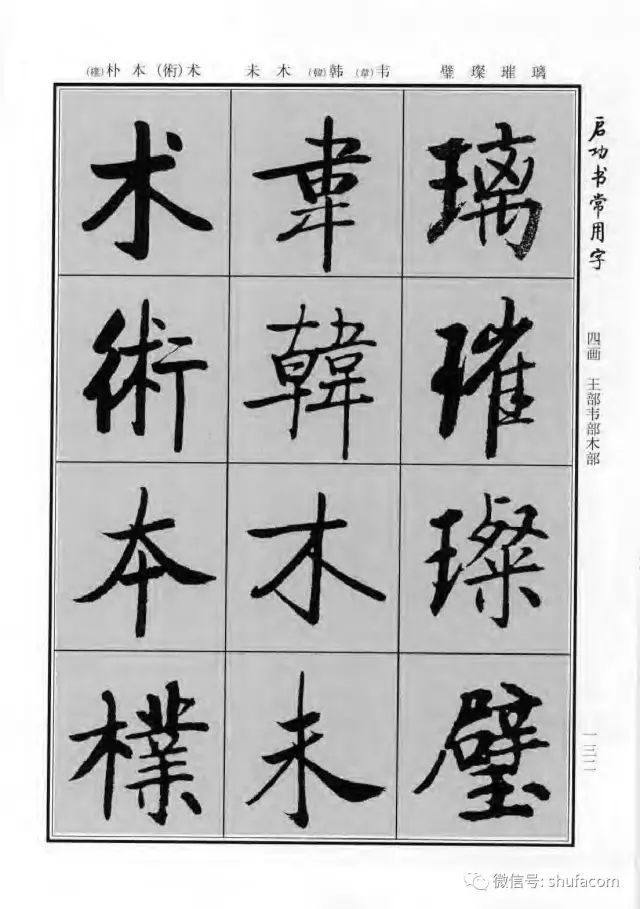 璧 璨 璀 璃
未 木 (韓)韩 (韋)韦
(樸)朴 本 (術)术
启功书常用字
四画 王部韦部木部
一三二
璃
璀
璨
璧
韋
韓
木
未
术
術
本
樸
微信号: shufacom